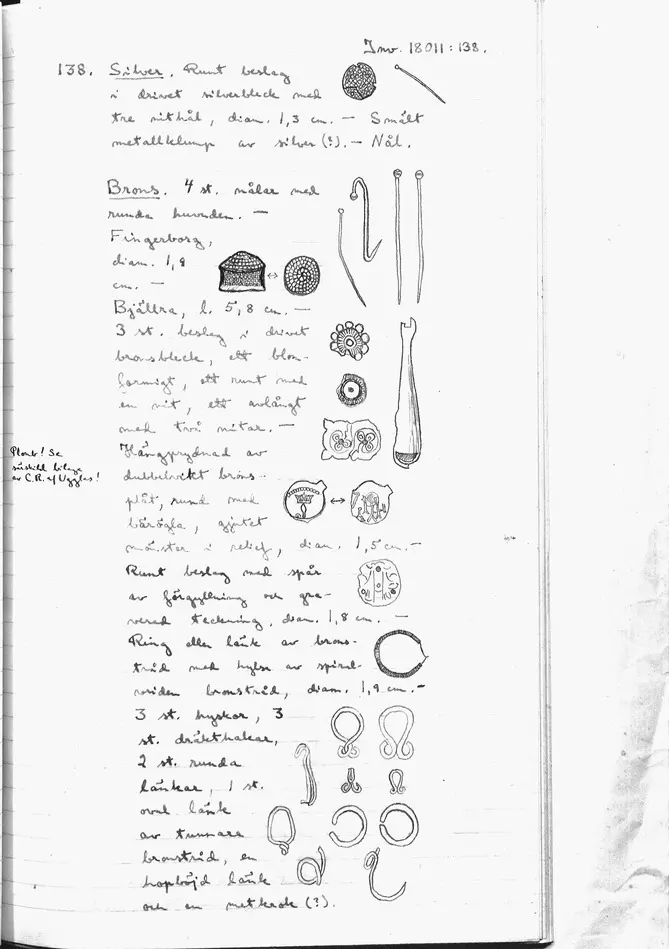 Inv. 18011:138.
138. Silver. Runt beslag
i drivet silverbleck med
tre nithål, diam. 1,3 cm. — Smält
metallklump av silver (?). — Nål.
Brons. 4 st. nålar med
runda huvuden. —
Fingerborg,
diam. 1,8
cm. —
Bjällra, l. 5,8 cm. —
3 st. beslag i drivet
bronsbleck, ett blom-
formigt, ett runt med
en nit, ett avlångt
med två nitar. —
Plomb! Se
särskild bilaga
av C.R. af Ugglas!
Hängprydnad av
dubbelvikt brons-
plåt, rund med
bärögla, gjutet
mönster i relief, diam. 1,5 cm. —
Runt beslag med spår
av förgyllning och gra-
verad teckning, diam. 1,8 cm. —
Ring eller länk av brons-
tråd med hylsa av spiral-
vriden bronstråd, diam. 1,9 cm. —
3 st. hyskor, 3
st. dräkthakar,
2 st. runda
länkar, 1 st.
oval länk
av tunnare
bronstråd, en
hopböjd länk
och en metkrok (?).